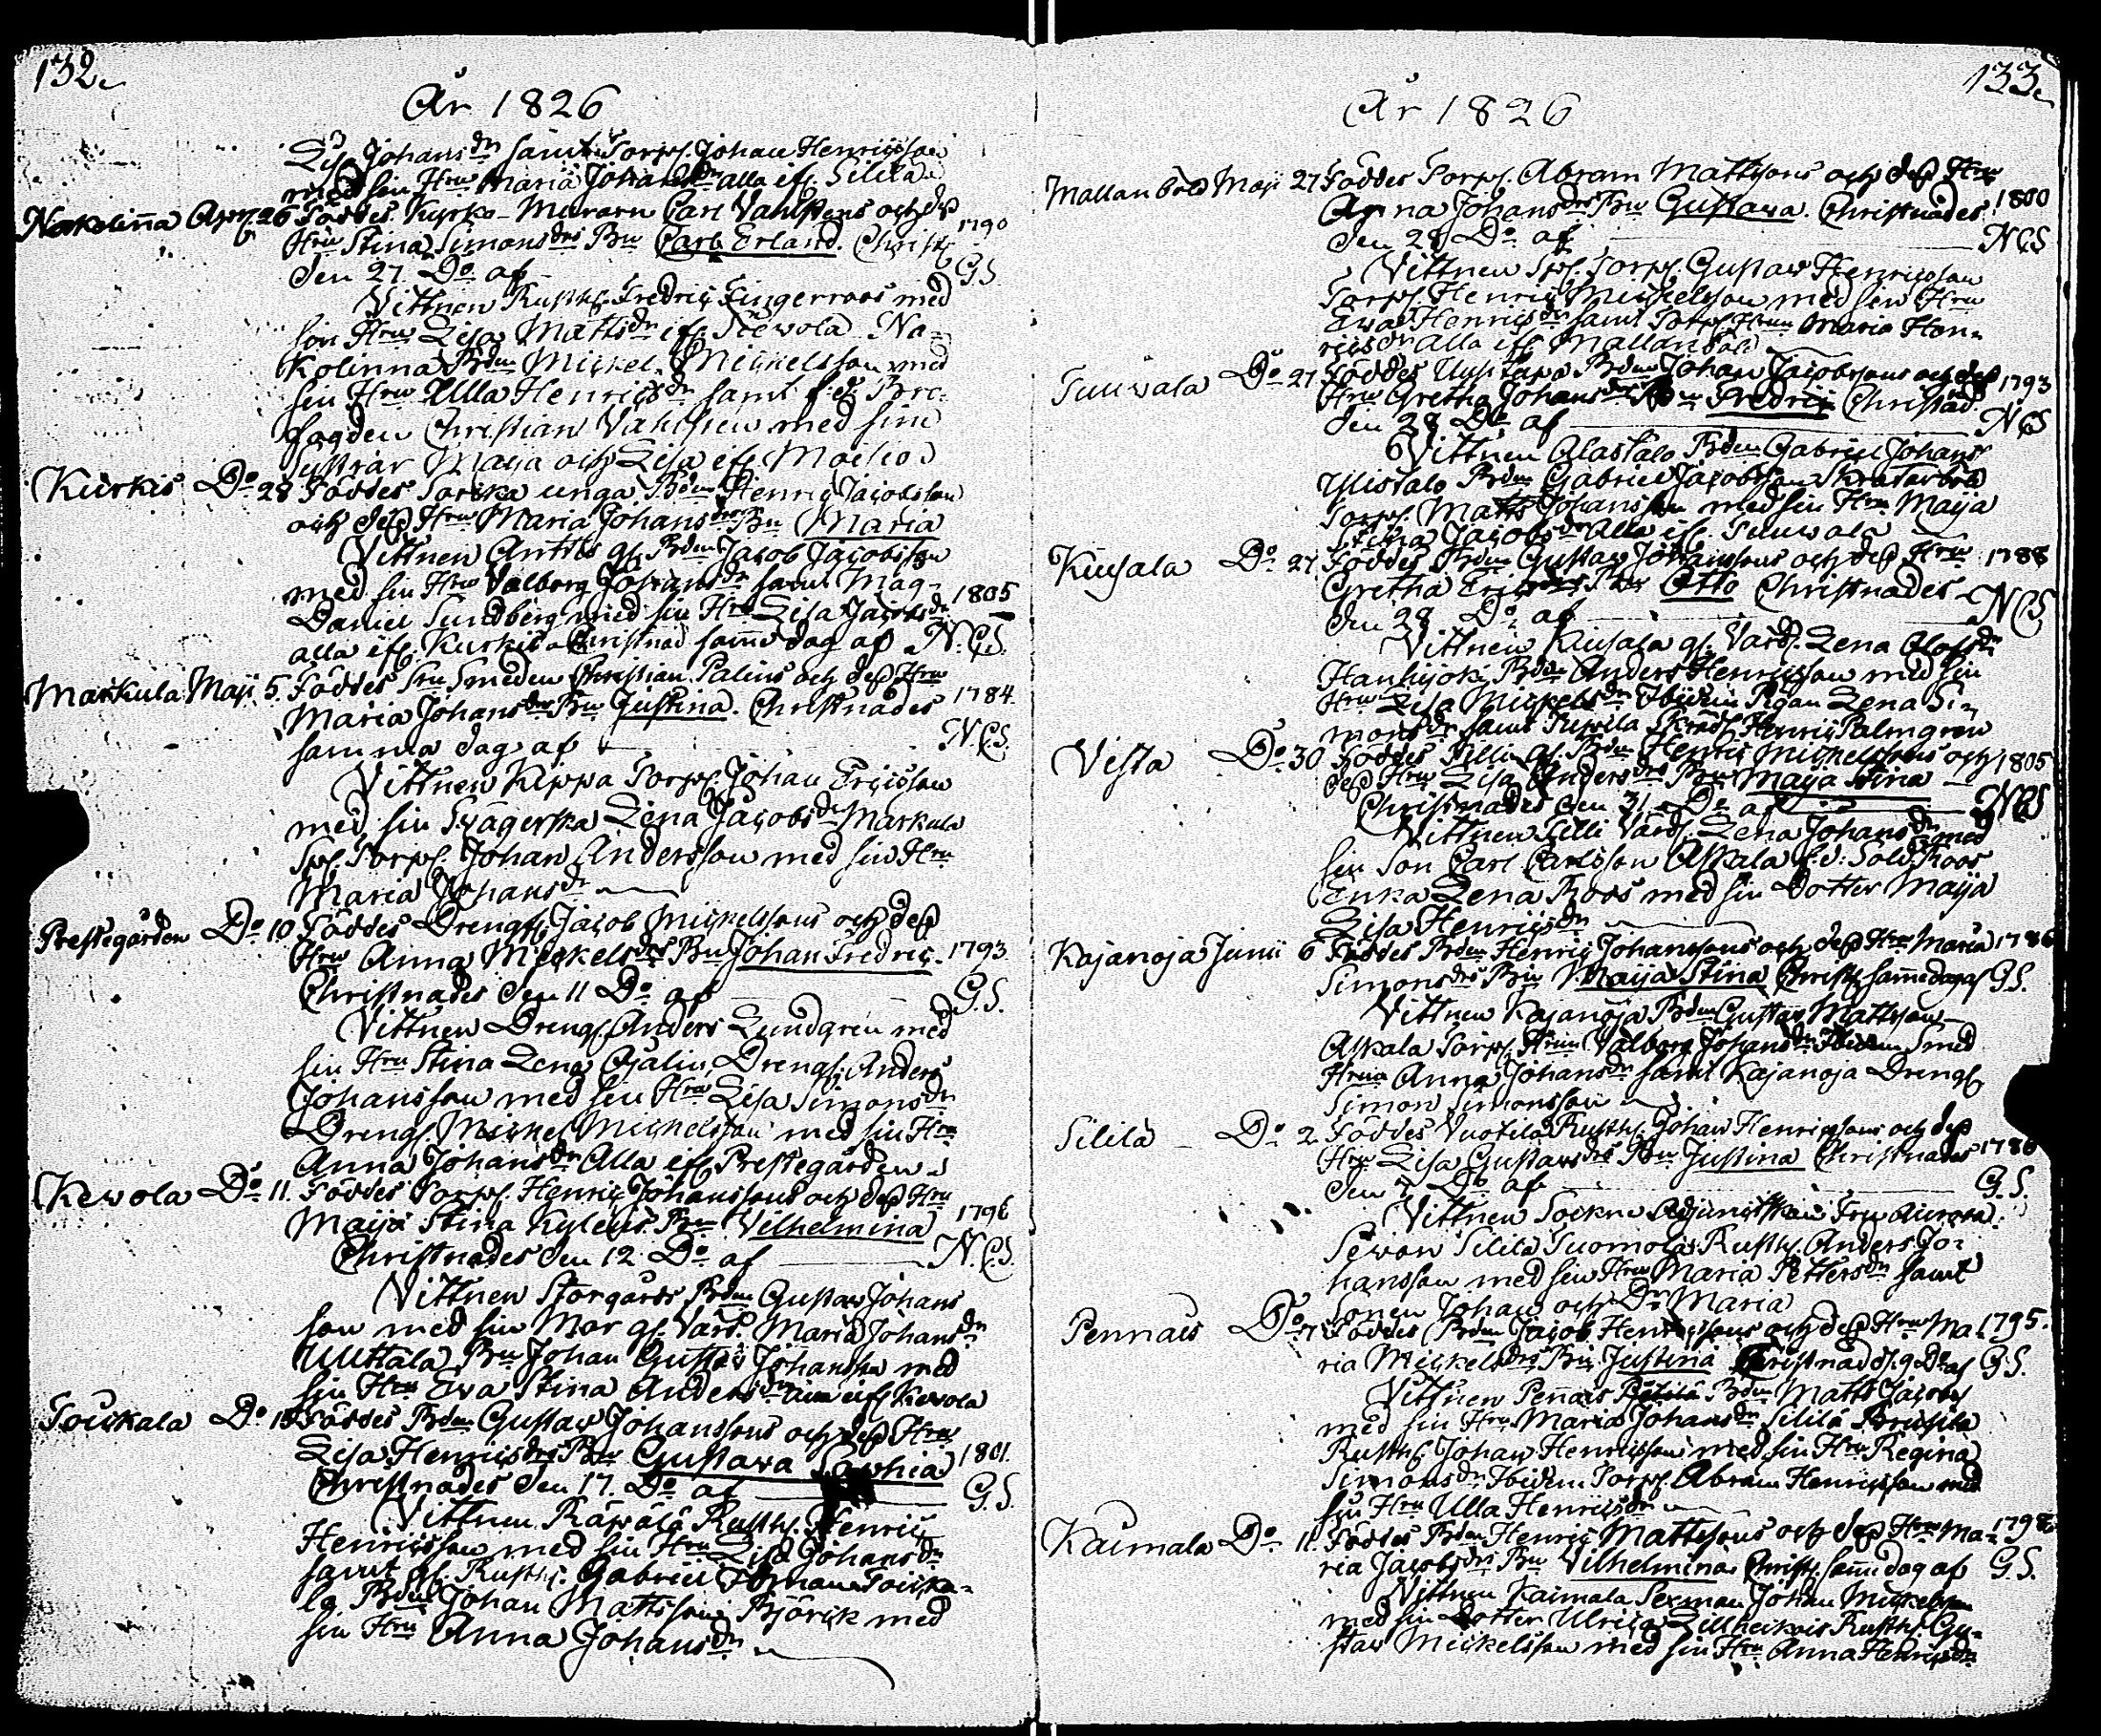 132
År 1826
Lisa Johansdr samt Torp. Johan Henricsson
med sin Hru Maria Johansdr alla ifr. Silila
Nakolinna Apr. 26 Föddes Kyrko-Muraren Carl Vahlstens och dess
Hru Stina Simonsdrs Bn Carl Erland. Christs 1790
den 27 Do af G.S.
Vittnen Rusth. Fredric Fingerroos med
sin Hru Lisa Mattsdr ifr. Kewola Na-
kolinna Bdn Michel Michelsson med
sin Hru Ulla Henricsdr samt f.d. Bro-
fogden Christian Vahlsten med sine
Systrar Maija och Lisa ifr.
Kurkis Do 28 Föddes unga Bdn Henric Jacobsson
och dess Hru Maria Johansdrs Bn Maria
Vittnen Anttis gl. Bdn Jacob Jacobsson
med sin Hru Valborg Johansdr samt Mag-
Daniel Sundberg med sin Hru Lisa Jacobsdr 1805
alla ifr. Kurkis Christnad samma dag af N.C.S.
Markula Maji 5. Föddes Smeden Christian Palins och dess Hru
Maria Johansdrs Bn Justina. Christnades 1784
samma dag af N.C.S.
Vittnen Kippa Torp. Johan Ericsson
med sin Svägerska Lena Jacobsdr Markula
Torp. Johan Andersson med sin Hru
Maria Johansdr
Prestegården Do 10 Föddes Drengs. Jacob Michelssons och dess
Hru Anna Michelsdrs Bn Johan Fredric. 1793
Christnades den 11 Do af G.S.
Vittnen Drengs. Anders Lundgren med
sin Hru Stina Lena Drengs. Anders
Johansson med sin Hru Lisa Simonsdr
Drengs Michel Michelsson med sin Hru
Anna Johansdr Alla ifr Prestegården
Kewola Do 11. Föddes Torp. Henric Johanssons och dess Hru
Maija Stina Kylens Bn Vilhelmina 1796
Christnades den 12 Do af N.C.S.
Vittnen Storgårds Bdn Gustav Johans
son med sin Mor gl. Värd. Maria Johansdr
Uuttala Bn Johan Gustav Johansson med
sin Hru Eva Stina Andersdr ifr Kewola
Toukala Do Föddes Bdn Gustav Johanssons och dess Hru
Lisa Henricsdrs Bn Gustava Sophia 1801.
Christnades den 17. Do af G.S.
Vittnen Räpälä Rusth. Henric
Henricsson med sin Hru Lisa Johansdr
samt gl. Rusth. Gabriel Touka-
la Bdn Johan Mattsson Björck med
sin Hru Anna Johansdr
133
År 1826
Mallanböle Maji 27 Föddes Torp. Abram Mattssons och dess Hru
Anna Johansdrs Bn Gustava. Christnades 1800
den 28 Do af NCS
Vittnen Torp. Gustav Henricsson
Torp. Henric Michelsson med sin Hru
Eva Henricsdr samt Torp. Hrun Maria Hen-
ricsdr alla ifr Mallanböle
Tuuvala Do 27 Föddes Bdn Johan Jacobssons och dess 1793
Hru Gretha Johansdrs Bn Fredric Christnad
den 28 Do af NCS
Vittnen Alastalo Bdn Gabriel Johans
Ylistalo Bdn Gabriel Jacobsson
Torp. Matts Johansson med sin Hru Maija
Stina Jacobsdr Alla ifr. Tuuvala
Kuusala Do 27 Föddes Bdn Gustav Johanssons och dess Hru 1788
Gretha Bn Otto Christnades
den 28 Do af NCS
Vittnen Kuusala gl. Värd. Lena Olofsdr
Hanhijoki Bdn Anders Henricsson med sin
Hru Lisa Michelsdr Ibidem Pigan Lena Si-
monsdr samt Henric Palmgren
Vista Do 30 Föddes Tilli gl. Bdn Henric Michelssons och 1805
dess Hru Lisa Andersdrs Bn Maja Stina
Christnades den 31 Do af NCS
Vittnen Tilli Värd. Lena Johansdr med
sin Son Carl Carlsson Askala f.d. Sold. Roos
Enka Lena Roos med sin Dotter Maija
Lisa Henricsdr
Kajanoja Junii 6 Föddes Bdn Henric Johanssons och dess Hru Maria 1786
Simonsdrs Bn Maija Stina Christs samme dag af G.S.
Vittnen Kajanoja Bdn Gustav Mattsson
Askala Torp. Hrun Valborg Johansdr Ibidem Smed
Hrun Anna Johansdr samt Kajanoja Drengs
Simon Simonsson
Silila Do 2 Föddes Vuotila Rusth. Johan Henricssons och dess
Hru Lisa Gustavsdrs Bn Justina Christnades 1786
den 7 Do af G.S.
Vittnen Sockne Adjunctskan Fru Aurora
Sevon Silila Suomola Rusth. Anders Jo-
hansson med sin Hru Maria Pettersdr samt
Sonen Johan och Dr Maria
Pennais Do 7 Föddes Bdn Jacob Henricssons och dess Hru Ma- 1795.
ria Michelsdrs Bn Justina Christnad d. 9 Do af G.S.
Vittnen Pennais Bdn Matts Jacobss
med sin Hru Maria Johansdr Silila
Rusth. Johan Henricsson med sin Hru Regina
Simonsdr Ibidem Torp. Abram Henricsson med
sin Hru Ulla Henricsdr
Kaimala Do 11. Föddes Bdn Henric Mattssons och dess Hru Ma- 1798
ria Jacobsdrs Bn Vilhelmina Christs. samme dag af G.S.
Vittnen Kaimala Sexman Johan Michelsson
med sin Dotter Ulrica Rusth. Gu-
stav Mickelsson med sin Hru Anna Henricsdr